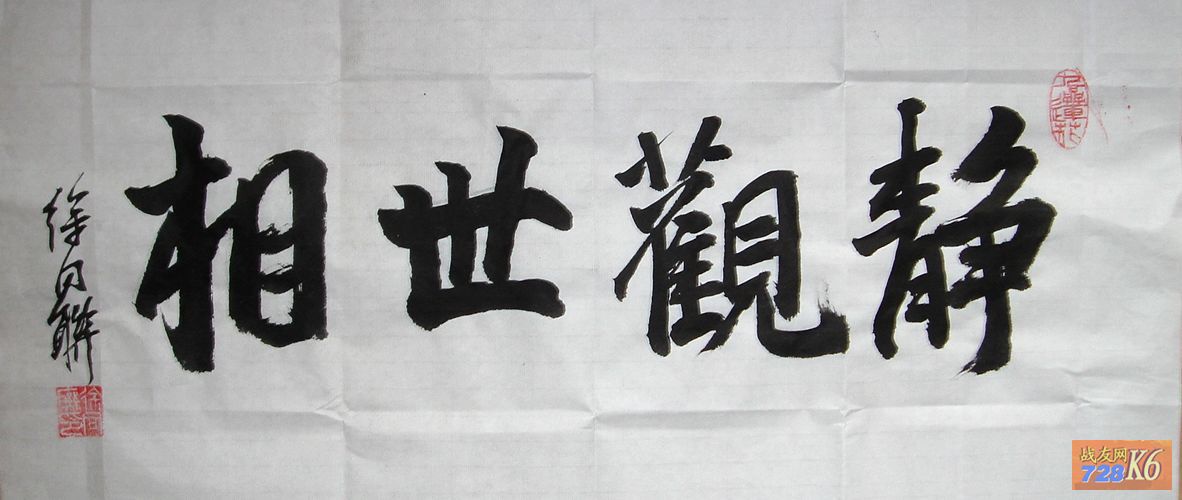 静觀世相
徐同聯
战友网
728K6